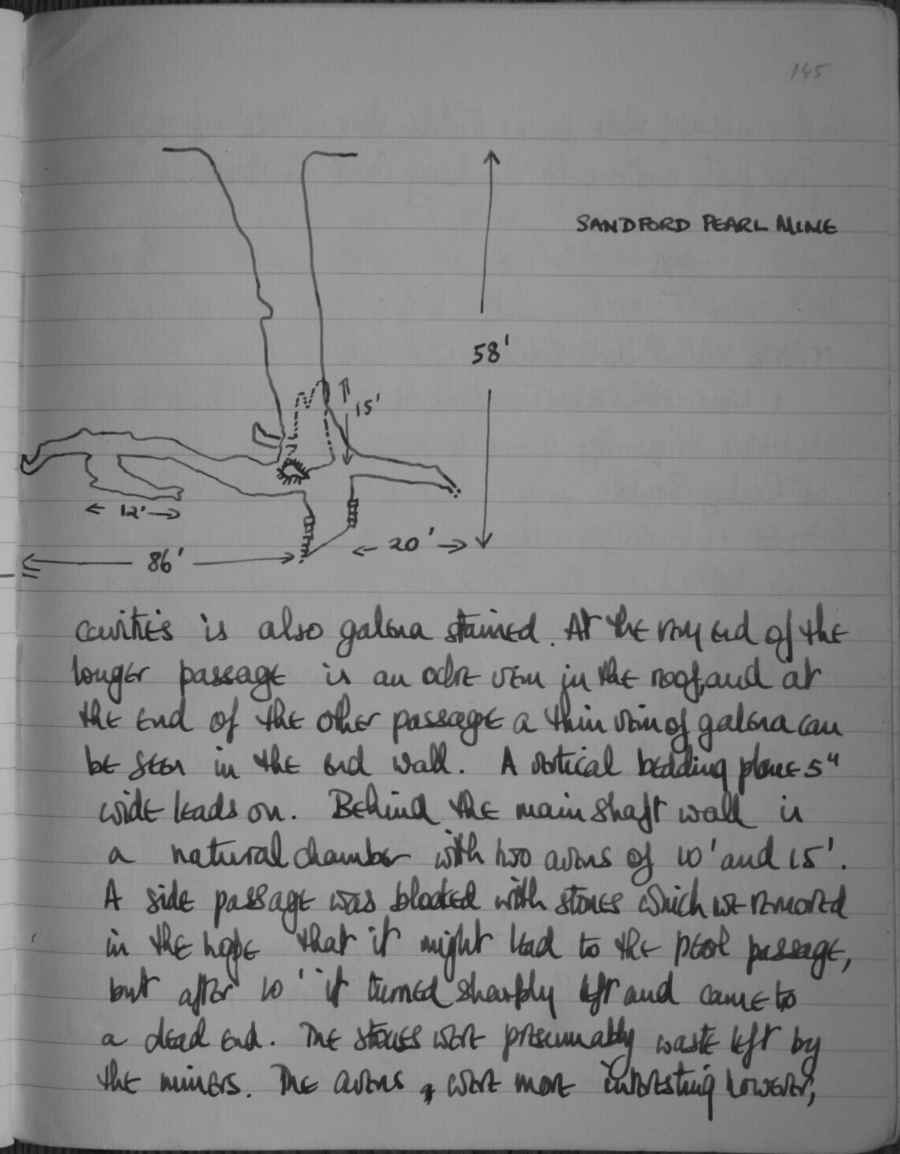 145
SANDFORD PEARL MINE
58'
15'
12'
20'
86'
cavities is also galena stained. At the very end of the
longer passage is an ochre vein in the roof, and at
the end of the other passage a thin vein of galena can
be seen in the end wall. A vertical bedding plane 5"
wide leads on. Behind the main shaft wall is
a natural chamber with two avens of 10' and 15'.
A side passage was blocked with stones which we removed
in the hope that it might lead to the pearl passage,
but after 10' it turned sharply left and came to
a dead end. The stones were presumably waste left by
the miners. The avens, were more interesting however,